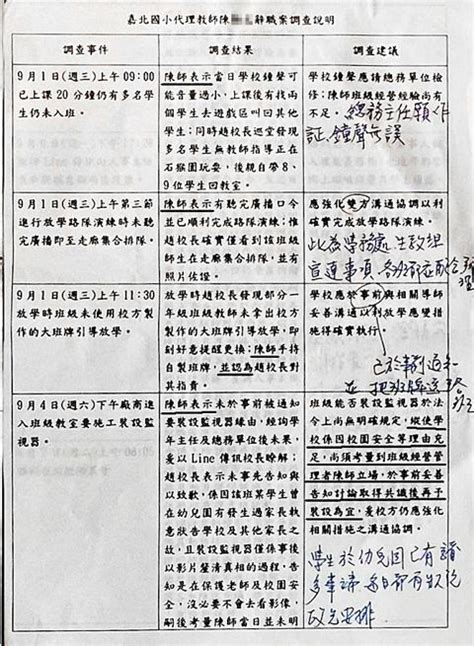 嘉北國小代理教師陳 辭職案調查說明
調查事件
調查結果
調查建議
9月1日(週三)上午09:00
已上課20分鐘仍有多名學
生仍未入班。
陳師表示當日學校鐘聲可
能音量過小,上課後有找兩
個學生去遊戲區叫回其他
學生;同時趙校長巡堂發現
多名學生無教師指導正在
石猴園玩耍,後親自帶8、
9位學生回教室。
學校鐘聲應請總務單位檢
修;陳師班級經營經驗尚有
不足。總務主任願作
証,鐘聲無誤
9月1日(週三)上午第三節
進行放學路隊演練時未聽
完廣播即至走廊集合排隊。
陳師表示有聽完廣播口令
並已順利完成路隊演練;惟
趙校長確實僅看到該班級
師生在走廊集合排隊,並有
照片佐證。
應強化雙方溝通協調以利
確實完成放學路隊演練。
此為學務處生教組
宣達事項,各班都應配合辦
理
9月1日(週三)上午11:30
放學時班級未使用校方製
作的大班牌引導放學。
放學時趙校長發現部分一
年級班級教師未拿出校方
製作的大班牌引導放學,即
刻好意提醒更換;陳師手持
自製班牌,並認為趙校長對
其指責。
學校應於事前與相關導師
妥善溝通以利放學應變措
施得確實執行。
已於事前通知
9月4日(週六)下午廠商進
入班級教室要施工裝設監
視器。
陳師表示未於事前被通知
要裝設監視器緣由,經詢學
年主任及總務單位後未果,
爰以Line傳訊校長瞭解;
趙校長表示未事先告知與
以致歉,係因該班某學生曾
在幼兒園有發生過家長執
意狀告學校及其他家長之
故,且裝設監視器僅係事後
以影片釐清真相的過程,告
知是在保護老師及校園安
全,沒必要不會去看影像,
嗣後考量陳師當日並未明
班級能否裝設監視器於法
令上尚無明確規定,縱使學
校係因校園安全等理由充
足,尚須考量到班級經營管
理者陳師立場,於事前妥善
告知討論取得共識後再予
裝設為宜,爰校方仍應強化
相關措施之溝通協調。
學生於幼兒園已有諸